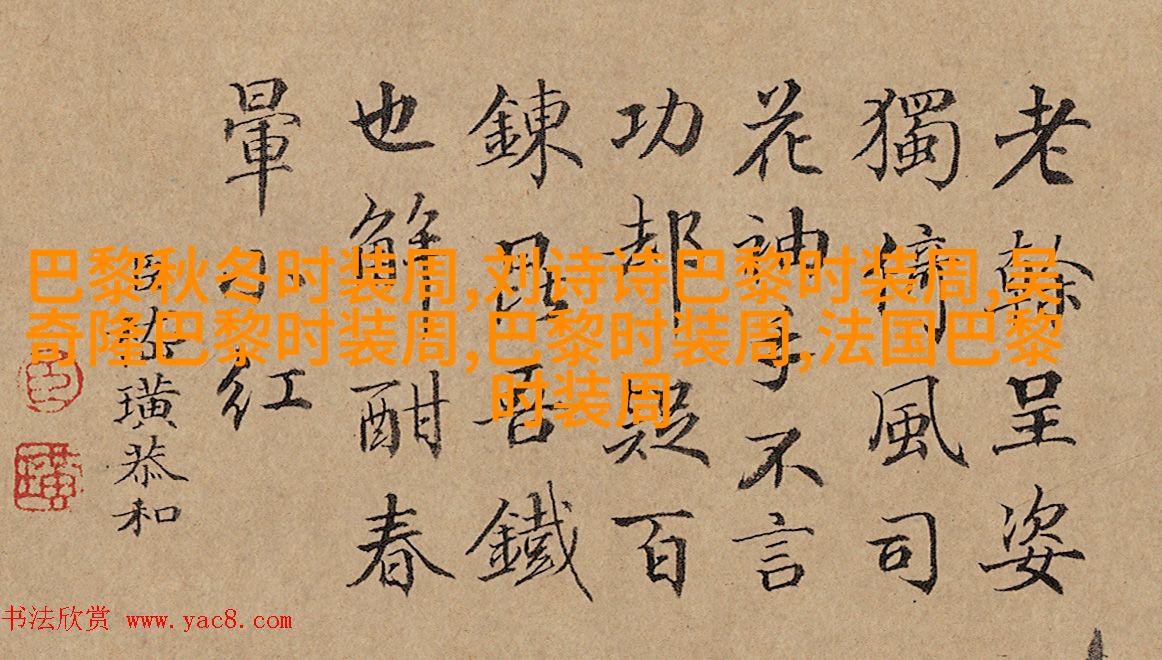 老呈姿
獨風司
花神手不言
功疑百
鍊昆吾鐵
也解酣春
暈小紅
璜恭和
巴黎秋冬时装周,刘诗诗巴黎时装周,吴
奇隆巴黎时装周,巴黎时装周,法国巴黎
时装周
书法欣赏 www.yac8.com